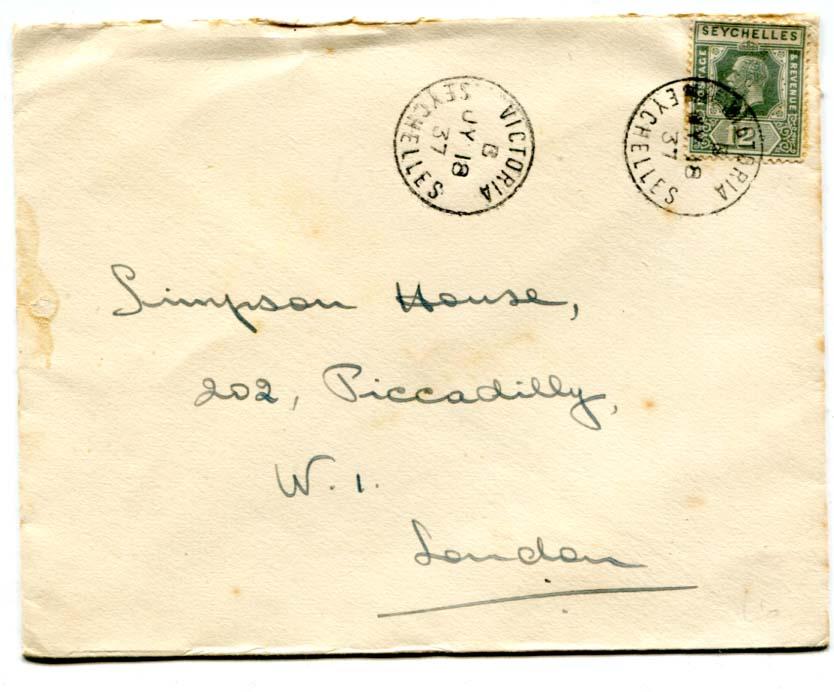 SEYCHELLES
POSTAGE & REVENUE
12
VICTORIA
B
JY 18
37
SEYCHELLES
VICTORIA
B
JY 18
37
SEYCHELLES
Simpson House,
202, Piccadilly,
W. 1.
London